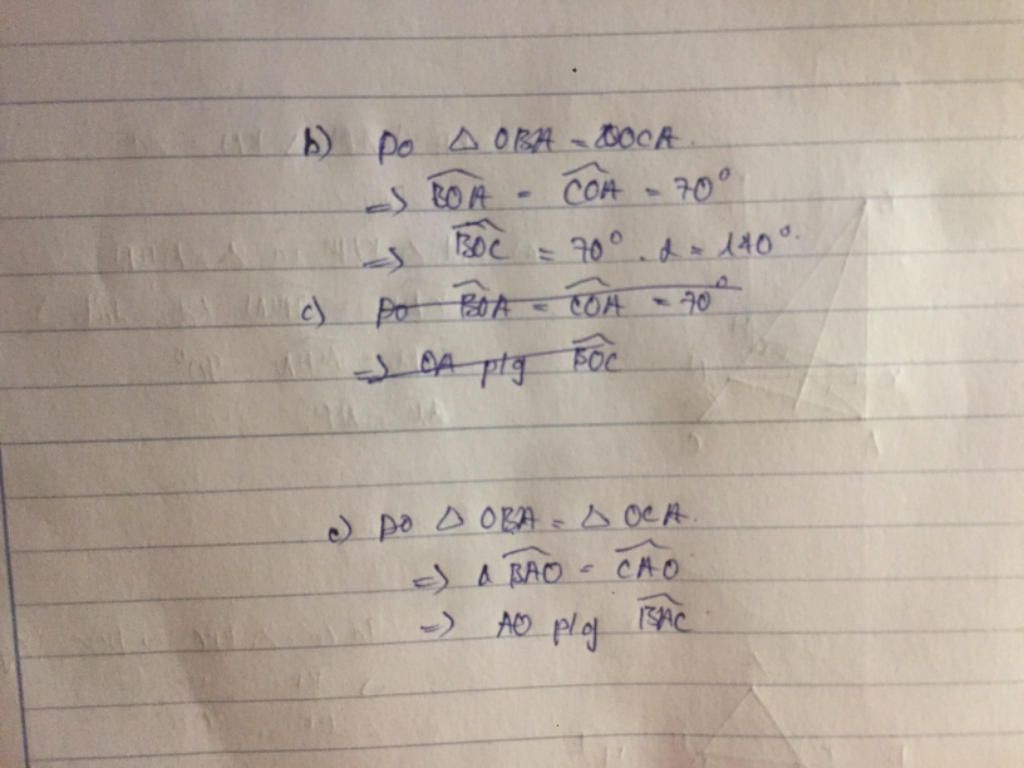 b) Do △ OBA = △OCA.
=> \widehat{BOA} = \widehat{COA} = 70°
=> \widehat{BOC} = 70° . 2 = 140°.
c) Do \widehat{BOA} = \widehat{COA} = 70°
=> OA p/g \widehat{BOC}
c) Do △ OBA = △ OCA.
=> \widehat{BAO} = \widehat{CAO}
=> AO p/g \widehat{BAC}